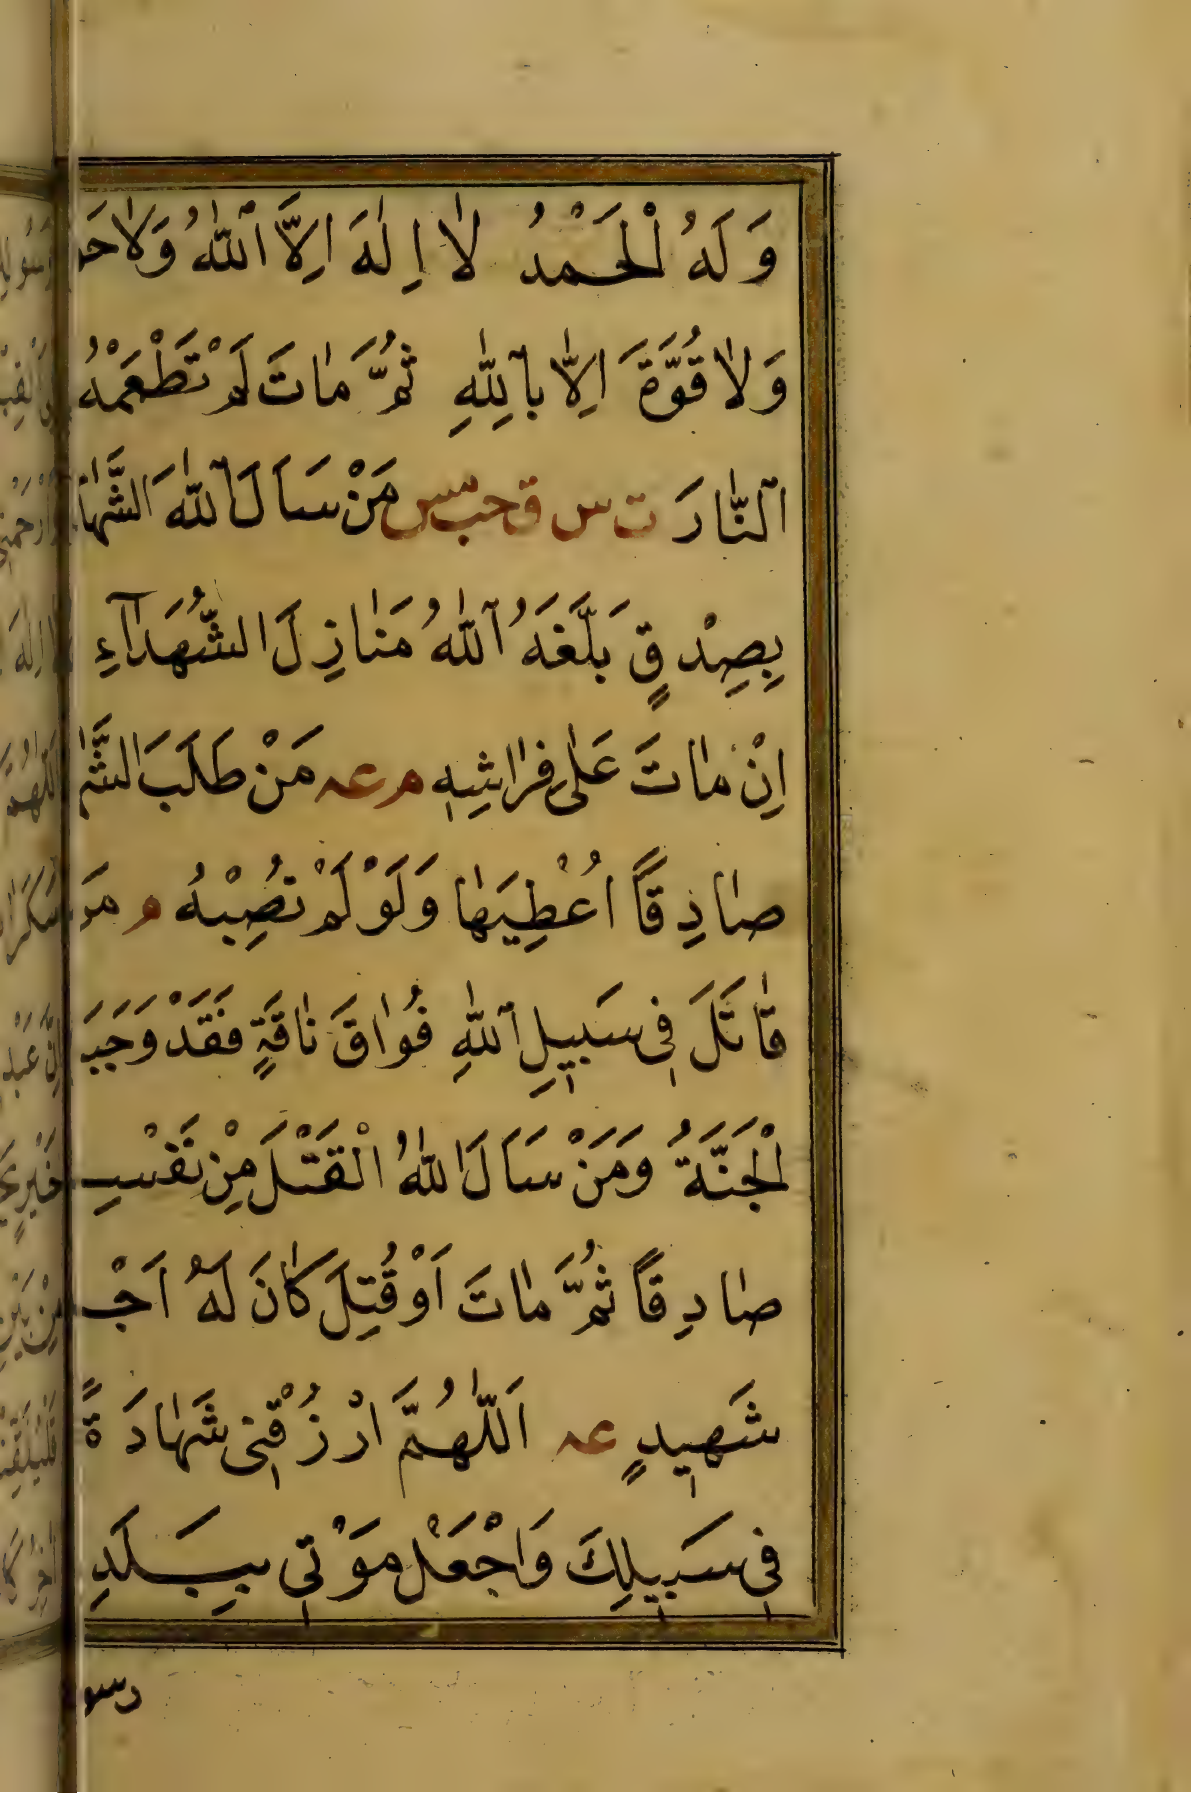 وَلَهُ الْحَمْدُ لَا اِلٰهَ اِلَّا اللّٰهُ وَلَا حَو
وَلَا قُوَّةَ اِلَّا بِاللّٰهِ ثُمَّ مَاتَ لَمْ تَطْعَمْهُ
النَّارَ ت س ق حب مس مَنْ سَاَلَ اللّٰهَ الشَّهَا
بِصِدْقٍ بَلَّغَهُ اللّٰهُ مَنَازِلَ الشُّهَدَآءِ
اِنْ مَاتَ عَلٰى فِرَاشِهٖ م عه مَنْ طَلَبَ الشَّهَا
صَادِقًا اُعْطِيَهَا وَلَوْ لَمْ تُصِبْهُ م مَن
قَاتَلَ فِي سَبِيلِ اللّٰهِ فُوَاقَ نَاقَةٍ فَقَدْ وَجَبَ
الْجَنَّةُ وَمَنْ سَاَلَ اللّٰهُ الْقَتْلَ مِنْ نَفْسِ
صَادِقًا ثُمَّ مَاتَ اَوْ قُتِلَ كَانَ لَهُ اَجْ
شَهِيدٍ عه اَللّٰهُمَّ ارْزُقْنِي شَهَادَةً
فِي سَبِيلِكَ وَاجْعَلْ مَوْتِي بِبَلَدِ
رسو